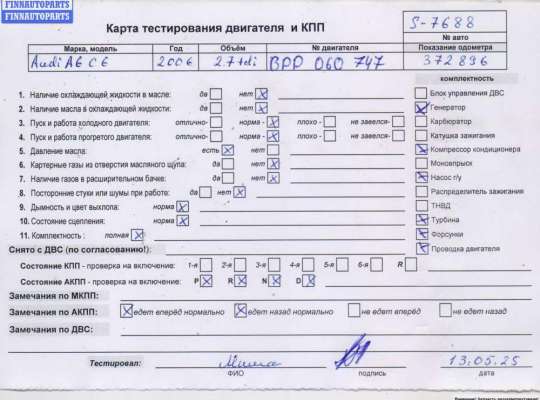 FINNAUTOPARTS
FINNAUTOPARTS
Карта тестирования двигателя и КПП
S-7688
№ авто
Марка, модель Год Объём № двигателя Показание одометра
Audi A6 C6 2006 2.7 tdi BPP 060 747 372 896
комплектность
1. Наличие охлаждающей жидкости в масле: да нет
Блок управления ДВС
2. Наличие масла в охлаждающей жидкости: да нет
Генератор
3. Пуск и работа холодного двигателя: отлично- норма - плохо - не завелся-
Карбюратор
4. Пуск и работа прогретого двигателя: отлично- норма - плохо - не завелся-
Катушка зажигания
5. Давление масла: есть нет
Компрессор кондиционера
6. Картерные газы из отверстия масляного щупа: да нет
Моновпрыск
7. Наличие газов в расширительном бачке: да нет
Насос г/у
8. Посторонние стуки или шумы при работе: да нет
Распределитель зажигания
9. Дымность и цвет выхлопа: норма
ТНВД
10. Состояние сцепления: норма
Турбина
11. Комплектность : полная
Форсунки
Снято с ДВС (по согласованию!):
Проводка двигателя
Состояние КПП - проверка на включение: 1-я 2-я 3-я 4-я 5-я 6-я R
Состояние АКПП - проверка на включение: P R N D
Замечания по МКПП:
Замечания по АКПП: едет вперёд нормально едет назад нормально не едет вперёд не едет назад
Замечания по ДВС:
Тестировал: 13.05.25
ФИО подпись дата